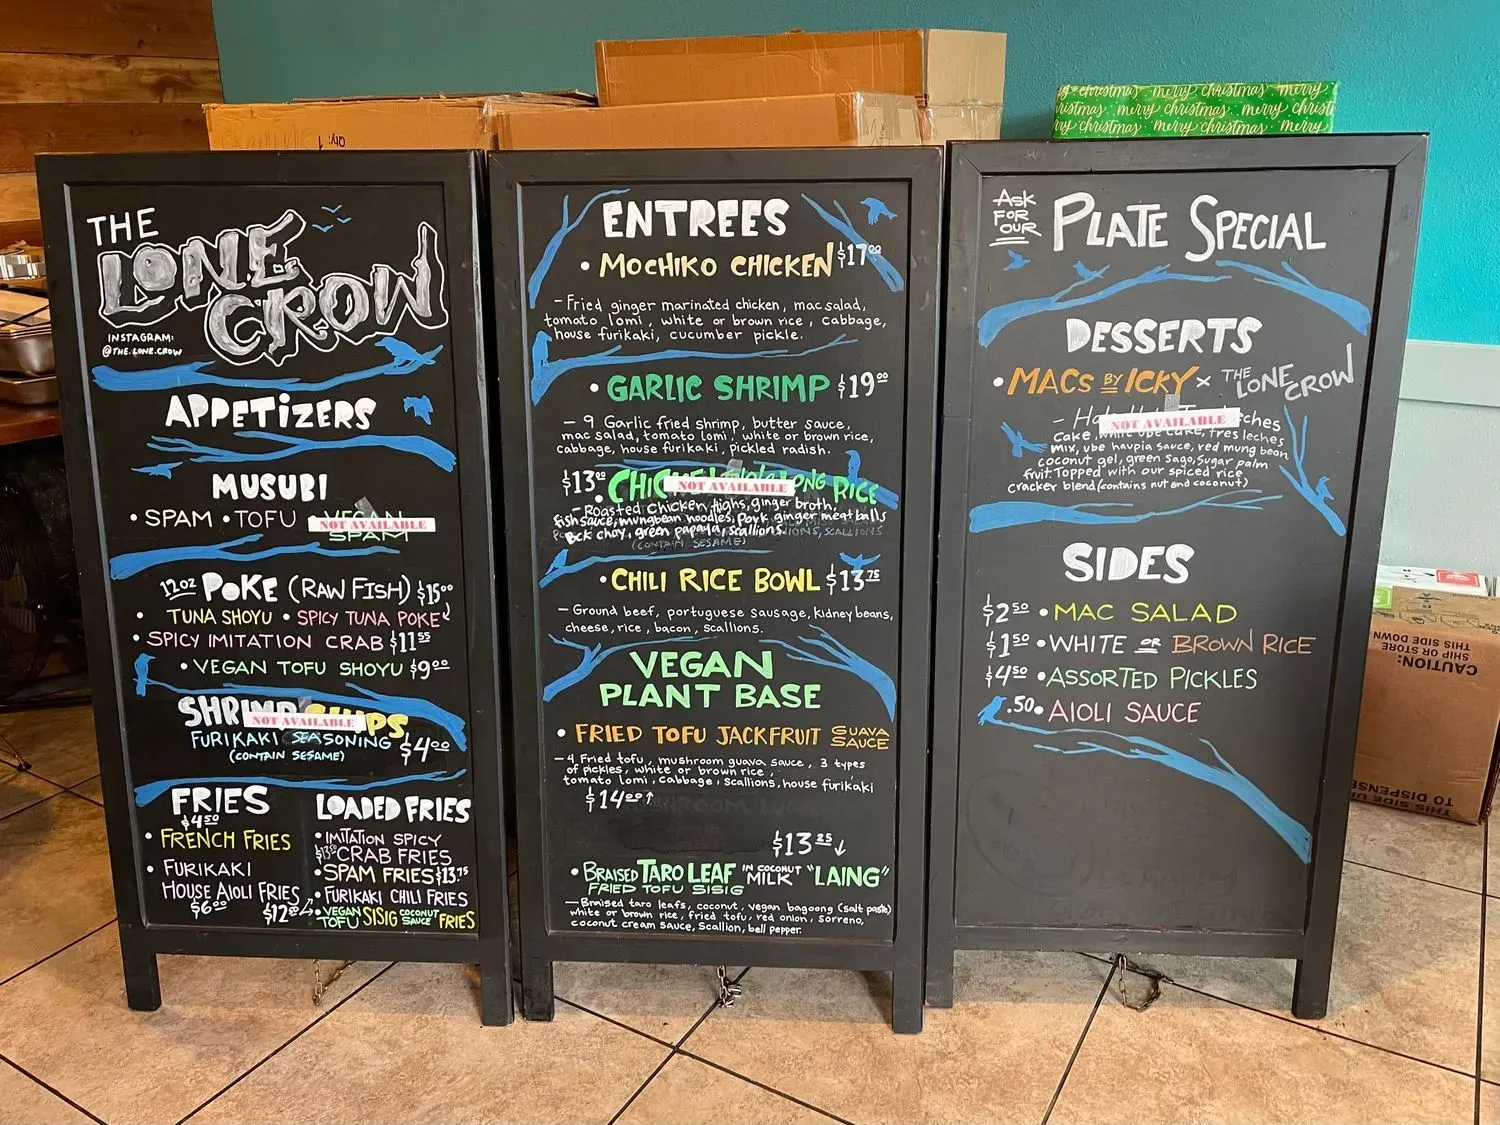 THE
LONE
CROW
INSTAGRAM:
@THE.LONE.CROW
APPETIZERS
MUSUBI
• SPAM • TOFU VEGAN
NOT AVAILABLE
SPAM
12 OZ POKE (RAW FISH) $15.00
• TUNA SHOYU • SPICY TUNA POKE
• SPICY IMITATION CRAB $11.55
• VEGAN TOFU SHOYU $9.00
SHRIMP CHIPS
NOT AVAILABLE
FURIKAKI SEASONING $4.00
(CONTAIN SESAME)
FRIES
$4.50
• FRENCH FRIES
• FURIKAKI
HOUSE AIOLI FRIES
$6.00
LOADED FRIES
• IMITATION SPICY
CRAB FRIES
• SPAM FRIES $13.75
• FURIKAKI CHILI FRIES
$12
• VEGAN TOFU SISIG COCONUT SAUCE FRIES
ENTREES
• MOCHIKO CHICKEN $17.00
- Fried ginger marinated chicken, mac salad,
tomato lomi, white or brown rice, cabbage,
house furikaki, cucumber pickle.
• GARLIC SHRIMP $19.00
- 9 Garlic fried shrimp, butter sauce,
mac salad, tomato lomi, white or brown rice,
cabbage, house furikaki, pickled radish.
$13.00
• CHICKEN LONG RICE
NOT AVAILABLE
- Roasted chicken thighs, ginger broth,
fish sauce, mungbean noodles, pork ginger meatballs
Bok choy, green papaya, scallions.
(CONTAIN SESAME)
• CHILI RICE BOWL $13.75
- Ground beef, portuguese sausage, kidney beans,
cheese, rice, bacon, scallions.
VEGAN
PLANT BASE
• FRIED TOFU JACKFRUIT GUAVA SAUCE
- 4 Fried tofu, mushroom guava sauce, 3 types
of pickles, white or brown rice,
tomato lomi, cabbage, scallions, house furikaki
$14.00 ↑
$13.25 ↓
• BRAISED TARO LEAF IN COCONUT MILK "LAING"
FRIED TOFU SISIG
- Braised taro leafs, coconut, vegan bagoong (salt paste)
white or brown rice, fried tofu, red onion, sorreno,
coconut cream sauce, scallion, bell pepper.
ASK FOR OUR PLATE SPECIAL
DESSERTS
• MACS BY ICKY X THE LONE CROW
NOT AVAILABLE
cake, white ube cake, tres leches
mix, ube haupia sauce, red mung bean,
coconut gel, green sago, sugar palm
fruit. Topped with our spiced rice
cracker blend (contains nut and coconut)
SIDES
$2.50 • MAC SALAD
$1.50 • WHITE OR BROWN RICE
$4.50 • ASSORTED PICKLES
.50 • AIOLI SAUCE
merry christmas merry christmas merry
CAUTION:
SHIP OR STORE
THIS SIDE DOWN
THIS SIDE UP
TO DISPENSE